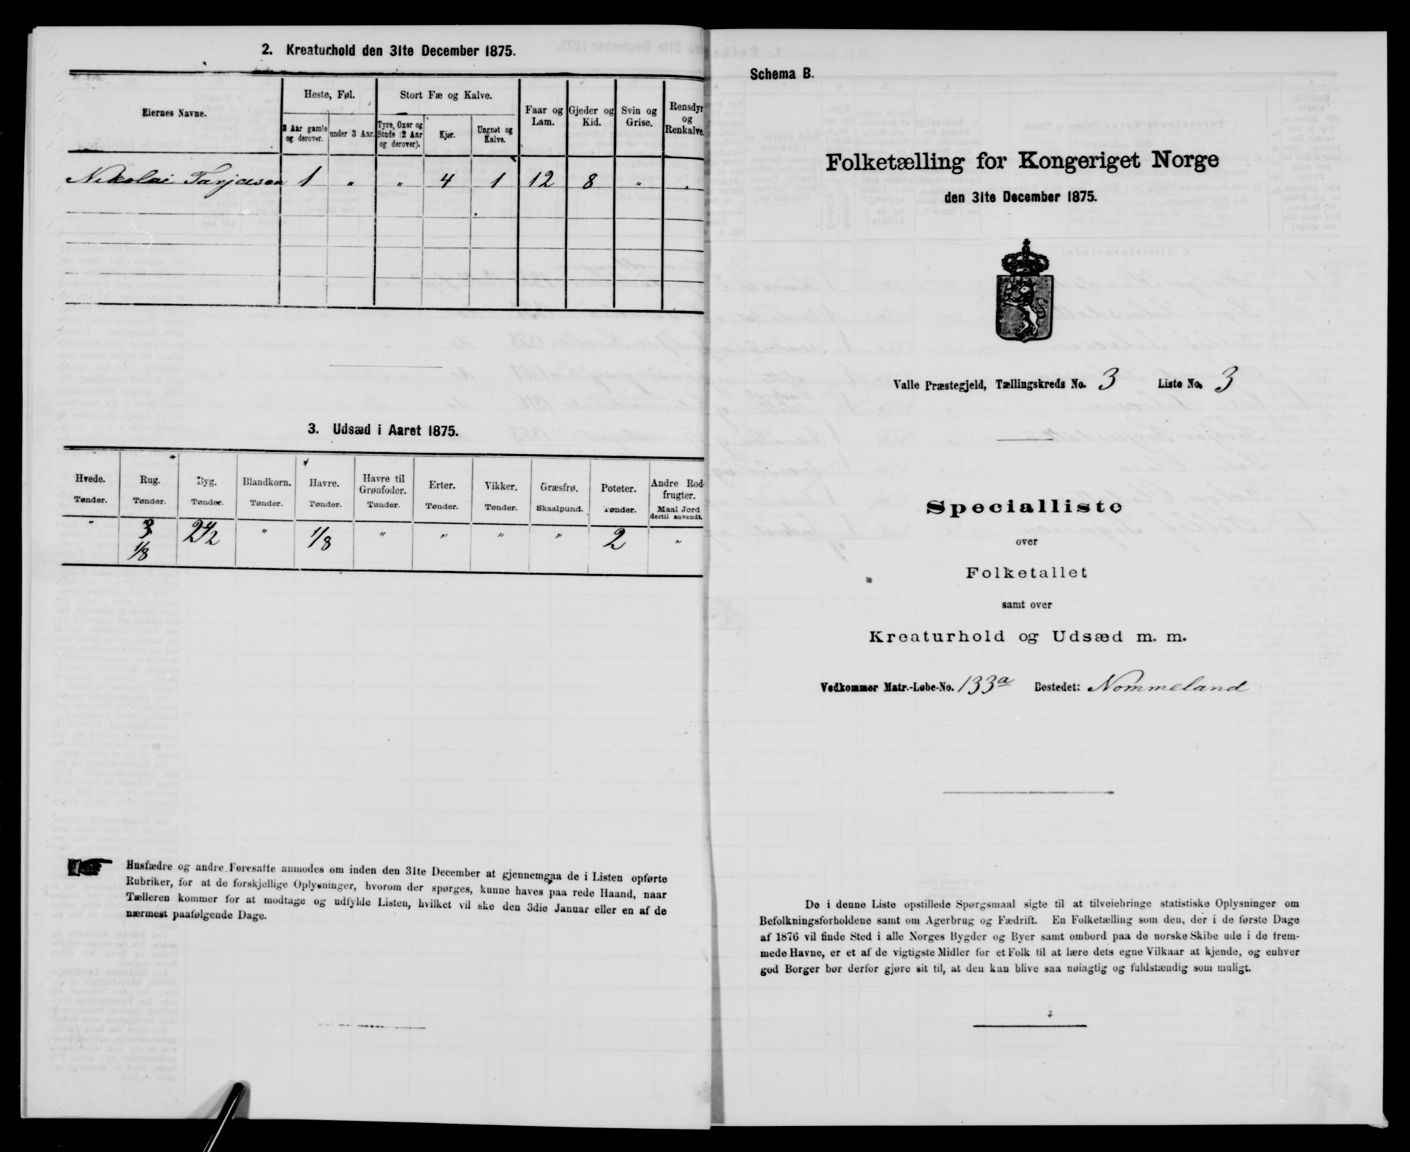 2. Kreaturhold den 31te December 1875.
Eiernes Navne.
Heste, Føl.
Stort Fæ og Kalve.
Faar og Lam.
Gjeder og Kid.
Svin og Grise.
Rensdyr og Renkalve.
3 Aar gamle og derover.
under 3 Aar.
Tyre, Oxer og Stude (2 Aar og derover).
Kjør.
Ungnøt og Kalve.
Nikolai Tarjeisen 1 " " 4 1 12 8 " "
3. Udsæd i Aaret 1875.
Hvede. Rug. Byg. Blandkorn. Havre. Havre til Grønfoder. Erter. Vikker. Græsfrø. Poteter. Andre Rodfrugter.
Tønder. Tønder. Tønder. Tønder. Tønder. Tønder. Tønder. Tønder. Skaalpund. Tønder. Maal Jord dertil anvendt.
" 1/8 " 1/8 " " " " 2 "
Husfædre og andre Foresatte anmodes om inden den 31te December at gjennemgaa de i Listen opførte
Rubriker, for at de forskjellige Oplysninger, hvorom der spørges, kunne haves paa rede Haand, naar
Tælleren kommer for at modtage og udfylde Listen, hvilket vil ske den 3die Januar eller en af de
nærmest paafølgende Dage.
Schema B.
Folketælling for Kongeriget Norge
den 31te December 1875.
Valle Præstegjeld, Tællingskreds No. 3 Liste No. 3
Specialliste
over
Folketallet
samt over
Kreaturhold og Udsæd m. m.
Vedkommer Matr.-Løbe-No. 133a Bostedet: Nommeland
De i denne Liste opstillede Spørgsmaal sigte til at tilveiebringe statistiske Oplysninger om
Befolkningsforholdene samt om Agerbrug og Fædrift. En Folketælling som den, der i de første Dage
af 1876 vil finde Sted i alle Norges Bygder og Byer samt ombord paa de norske Skibe ude i de frem-
mede Havne, er et af de vigtigste Midler for et Folk til at lære dets egne Vilkaar at kjende, og enhver
god Borger bør derfor gjøre sit til, at den kan blive saa nøiagtig og fuldstændig som muligt.